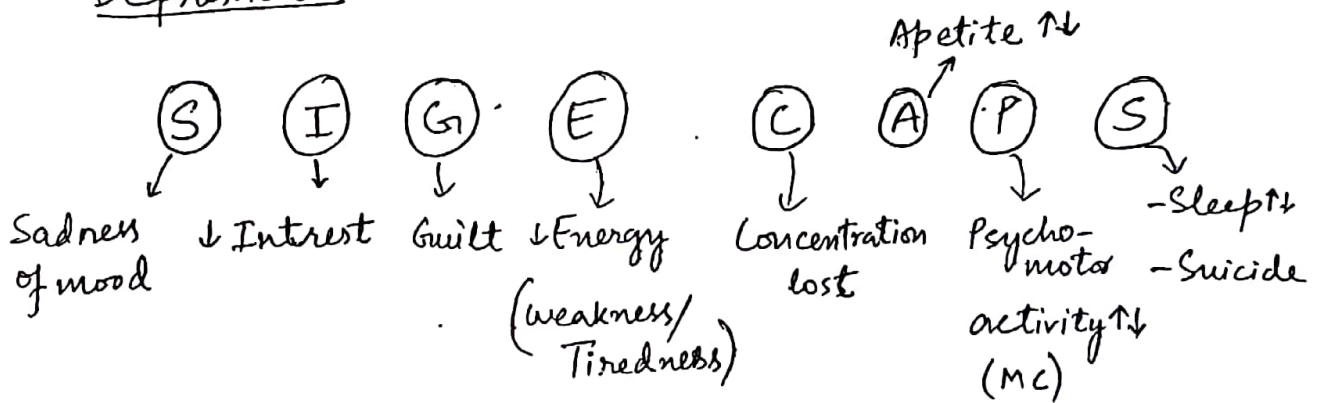 Apetite ↑↓
S I G E C A P S
Sadness of mood
↓ Intrest
Guilt
↓Energy
(weakness/
Tiredness)
Concentration
lost
Psycho-
motor
activity↑↓
(MC)
-Sleep↑↓
-Suicide